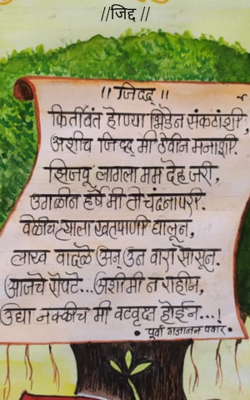 //जिद्द //
।। जिद्द ।।
किर्तीवंत होण्या भिडेन संकटांशी
अशीच जिद्द मी ठेवीन मनाशी.
झिजवू लागला मम देह जरी,
उगाळीन हर्षे मी तो चंदनापरी.
वेळीच त्याला खतपाणी घालून,
लाख वादळे अन् ऊन वारा सोसून.
आजचे रोपटे...अशी मी न राहीन,
उद्या नक्कीच मी वटवृक्ष होईन...!
• पूर्वा गजानन पवार •